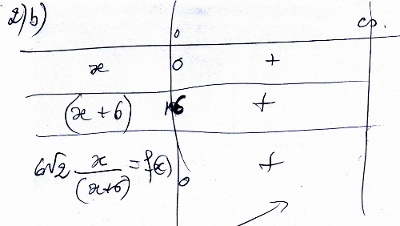 2)b)
0
x 0 +
(x + 6) 6 +
6√2 x/(x+6) = f(x) 0 +